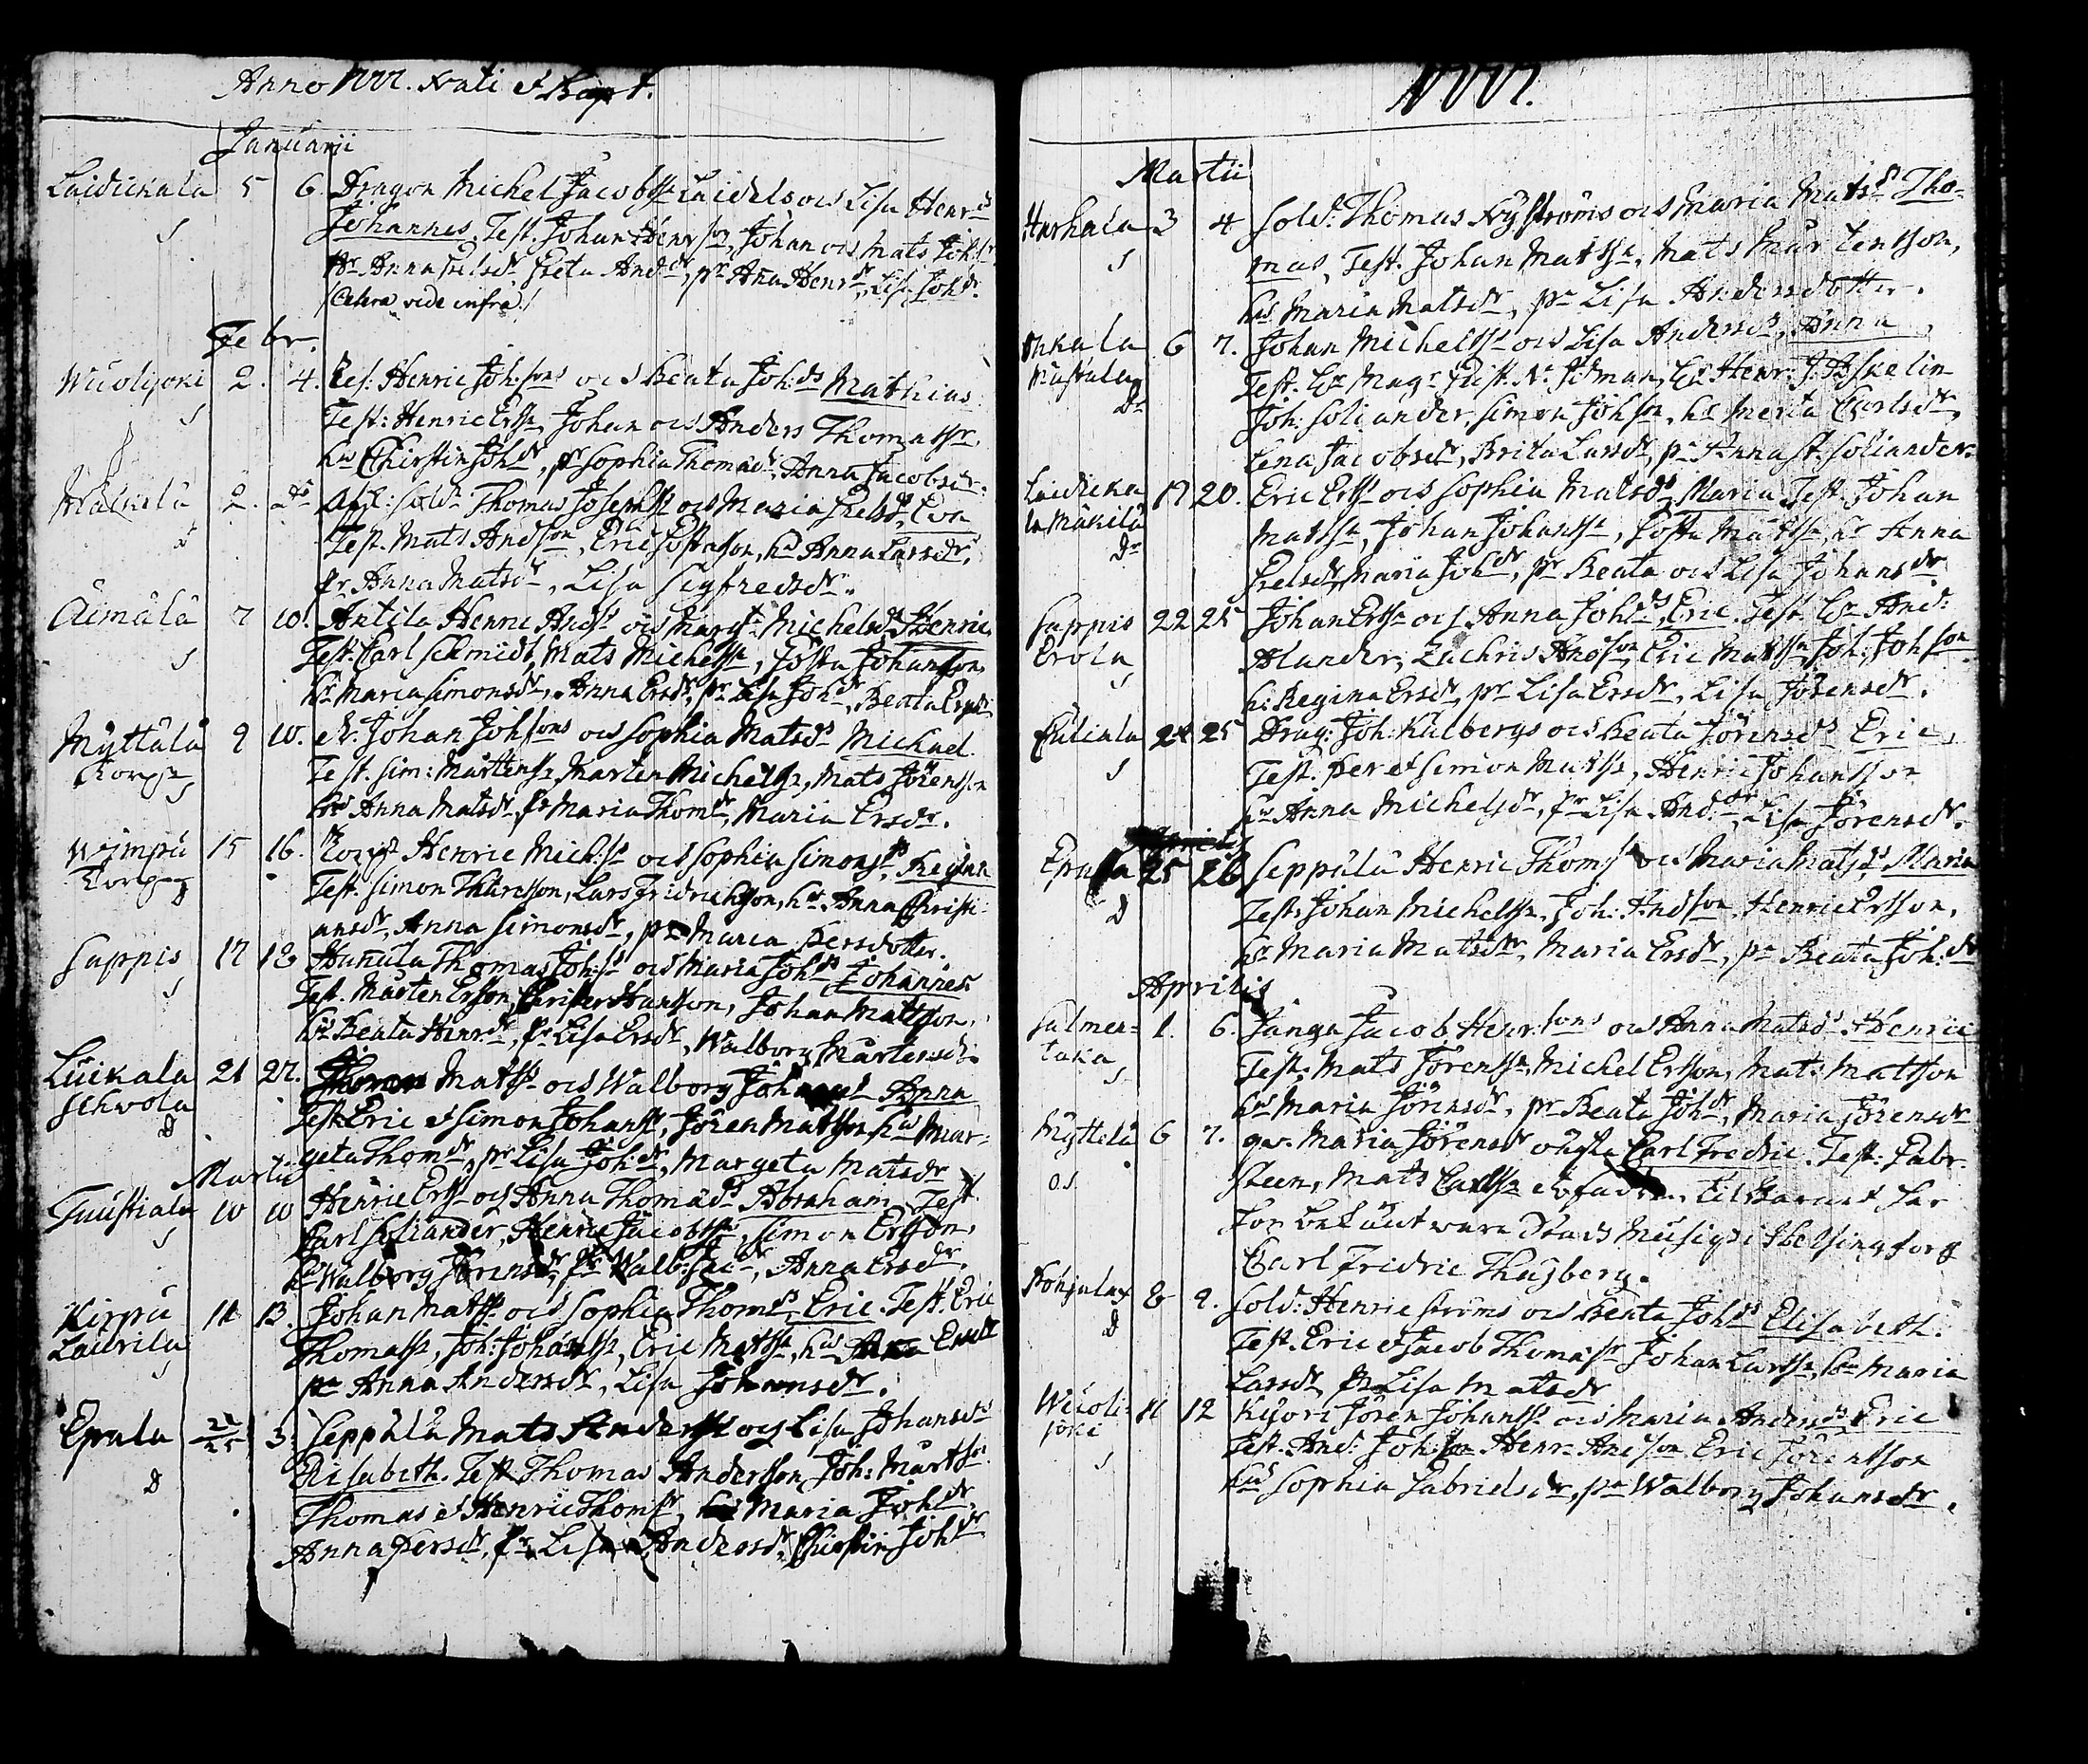 Anno 1777. Nati et Bapt.
Januarii
Laidickala 5 6. Dragon Michel Jacobss Laidels ocs Lisa Henr.ds
S Johannes, Test. Johan Henrson, Johan ocs Mats Joh.sr
Anna Greta And.dr, pr Ana Henrdr, Lisa Johdr.
(Cetera vide infra)
Febr.
Wuolijoki 2. 4. Henric Joh:sons ocs Beata Joh:ds Mathias
S Test: Henric Erss, Johan ocs Anders Thomassr
hu Chirstin Johdr, pr Sophia Thomadr, Anna Jacobsdr.
2. Thomas Josephss ocs Maria Eva
Test. Mats Andson, Eric Gustafson, hu Anna Larsdr,
pr Anna Matsdr, Lisa Sigfredsdr.
Äimälä 7 10. Antila Henric Andss ocs Margt Michelsds Henric
S Test. Carl Schmidt, Mats Michelss, Gösta Johanson
hr Maria Simonsdr, Anna Ersdr, pr Lisa Johdr, Beata
Myttälä 9 10. Johan Johsons ocs Sophia Matsds Michael
Korp Test. Sim: Mårtenss, Mårten Michelss, Mats Jörensson
S hr Anna Matsdr, pr Maria Thomdr, Maria Ersdr.
Wimpa 15 16. Henric Mich:ss ocs Sophia Simonsds, Regina
Torp Test. Simon Thuresson, Lars Fredrichson, hr Anna Christi-
D ansdr, Anna Simonsdr, pr Maria Persdotter.
Sappis 17 18 Hunula Thomas Joh:ss ocs Maria Johds Johannes
S Test. Mårten Ersson, Christer Hansson, Johan Matsson,
hr Beata Henrdr, pr Lisa Ersdr, Walborg Mårtensdr.
Luikala 21 22. Matss ocs Walborg Anna
Sehvola Test. Eric et Simon Johanss, Jören Matsson, hu Mar-
D geta Thomdr, pr Lisa Joh:dr, Margeta Matsdr
Martii
Tuustiala 10 10 Henric Erss ocs Anna Thomads Abraham, Test.
S Carl Soliander, Henric Jacobss, Simon Ersson,
hu Walborg Jörensdr, pr Walb: Jacdr, Anna Ersdr.
Kirpu 11 13. Johan Matss ocs Sophia Thomds, Eric. Test. Eric
Laurila Thomass, Joh: Johanss, Eric Matss, hu
S pr Anna Andersdr, Lisa Johansdr.
Eprala 3. Seppälä Mats Anderss ocs Lisa Johansds
D Elisabeth. Test Thomas Andersson, Joh: Martss
Thomas et Henric Thomsr, Maria Johdr,
Anna Persdr, pr Lisa Andersdr, Chirstin Johdr
1777.
Martii
Harhala 3 4 Sold: Thomas Nyströms ocs Maria Matsds Tho-
S mas, Test. Johan Matss, Mats Mårtensson,
hus Maria Matsdr, pr Lisa Andersdotter.
6 7. Johan Michelss ocs Lisa Andersds, Anna,
Test. Magr N. Idman, Henr: J. Asselin
Dr Joh: Soliander, Simon Johson, hr Merta Carlsdr,
Lena Jacobsdr, Brita Larsdr, pr Anna St. Soliander
Laidicka 17 20. Eric Erss ocs Sophia Matsds Maria Test. Johan
la Mäkilä Matss, Johan Johanss, Gösta Matss, hr Anna
Dr Maria Johdr, pr Beata ocs Lisa Johansdr
Sappis 22 25 Johan Erss ocs Anna Johds, Eric. Test. And:
Erola Alander, Zachris Andson, Eric Matss, Joh: Johson
S h: Regina Ersdr, pr Lisa Ersdr, Lisa Jörensdr.
Euliala 24 25 Drag: Joh: Kulbergs ocs Beata Jörensds Eric,
S Test. Per et Simon Matss, Henric Johansson
hu Anna Michelsdr, pr Lisa And:dr, Lisa Jörensdr.
Eprala 25 26 Seppälä Henric Thomss ocs Maria Matsds Maria
D Test: Johan Michelss, Joh: Andson, Henric Ersson,
hr Maria Matsdr, Maria Ersdr, pr Beata Joh:dr
Aprilis
Salmen= 1. 6. Janga Jacob Henr:sons ocs Anna Matsds Henric
taka Test: Mats Jörenss, Michel Ersson, Mats Matsson
S hr Maria Jörensdr, pr Beata Johdr, Maria Jörensdr
Myttälä 6 7. qw. Maria Jörensdr oägta Carl Fredric. Test: Fabr.
o.S. Steen, Mats Carlss
Musiqs i Helsingfors
Carl Fredric Thusberg.
Pohjala 8 9. Sold: Henric Ströms ocs Beata Johds Elisabeth.
D Test. Eric et Jacob Thomasr Johan Larss, hu Maria
Larsdr pr Lisa Matsdr
Wuoli= 11 12 Kuori Jören Johanss ocs Maria Andersds Eric
joki Test. And: Joh:son Henr: Andson Eric Jörensson
S hu Sophia Gabrielsdr, pr Walborg Johansdr.